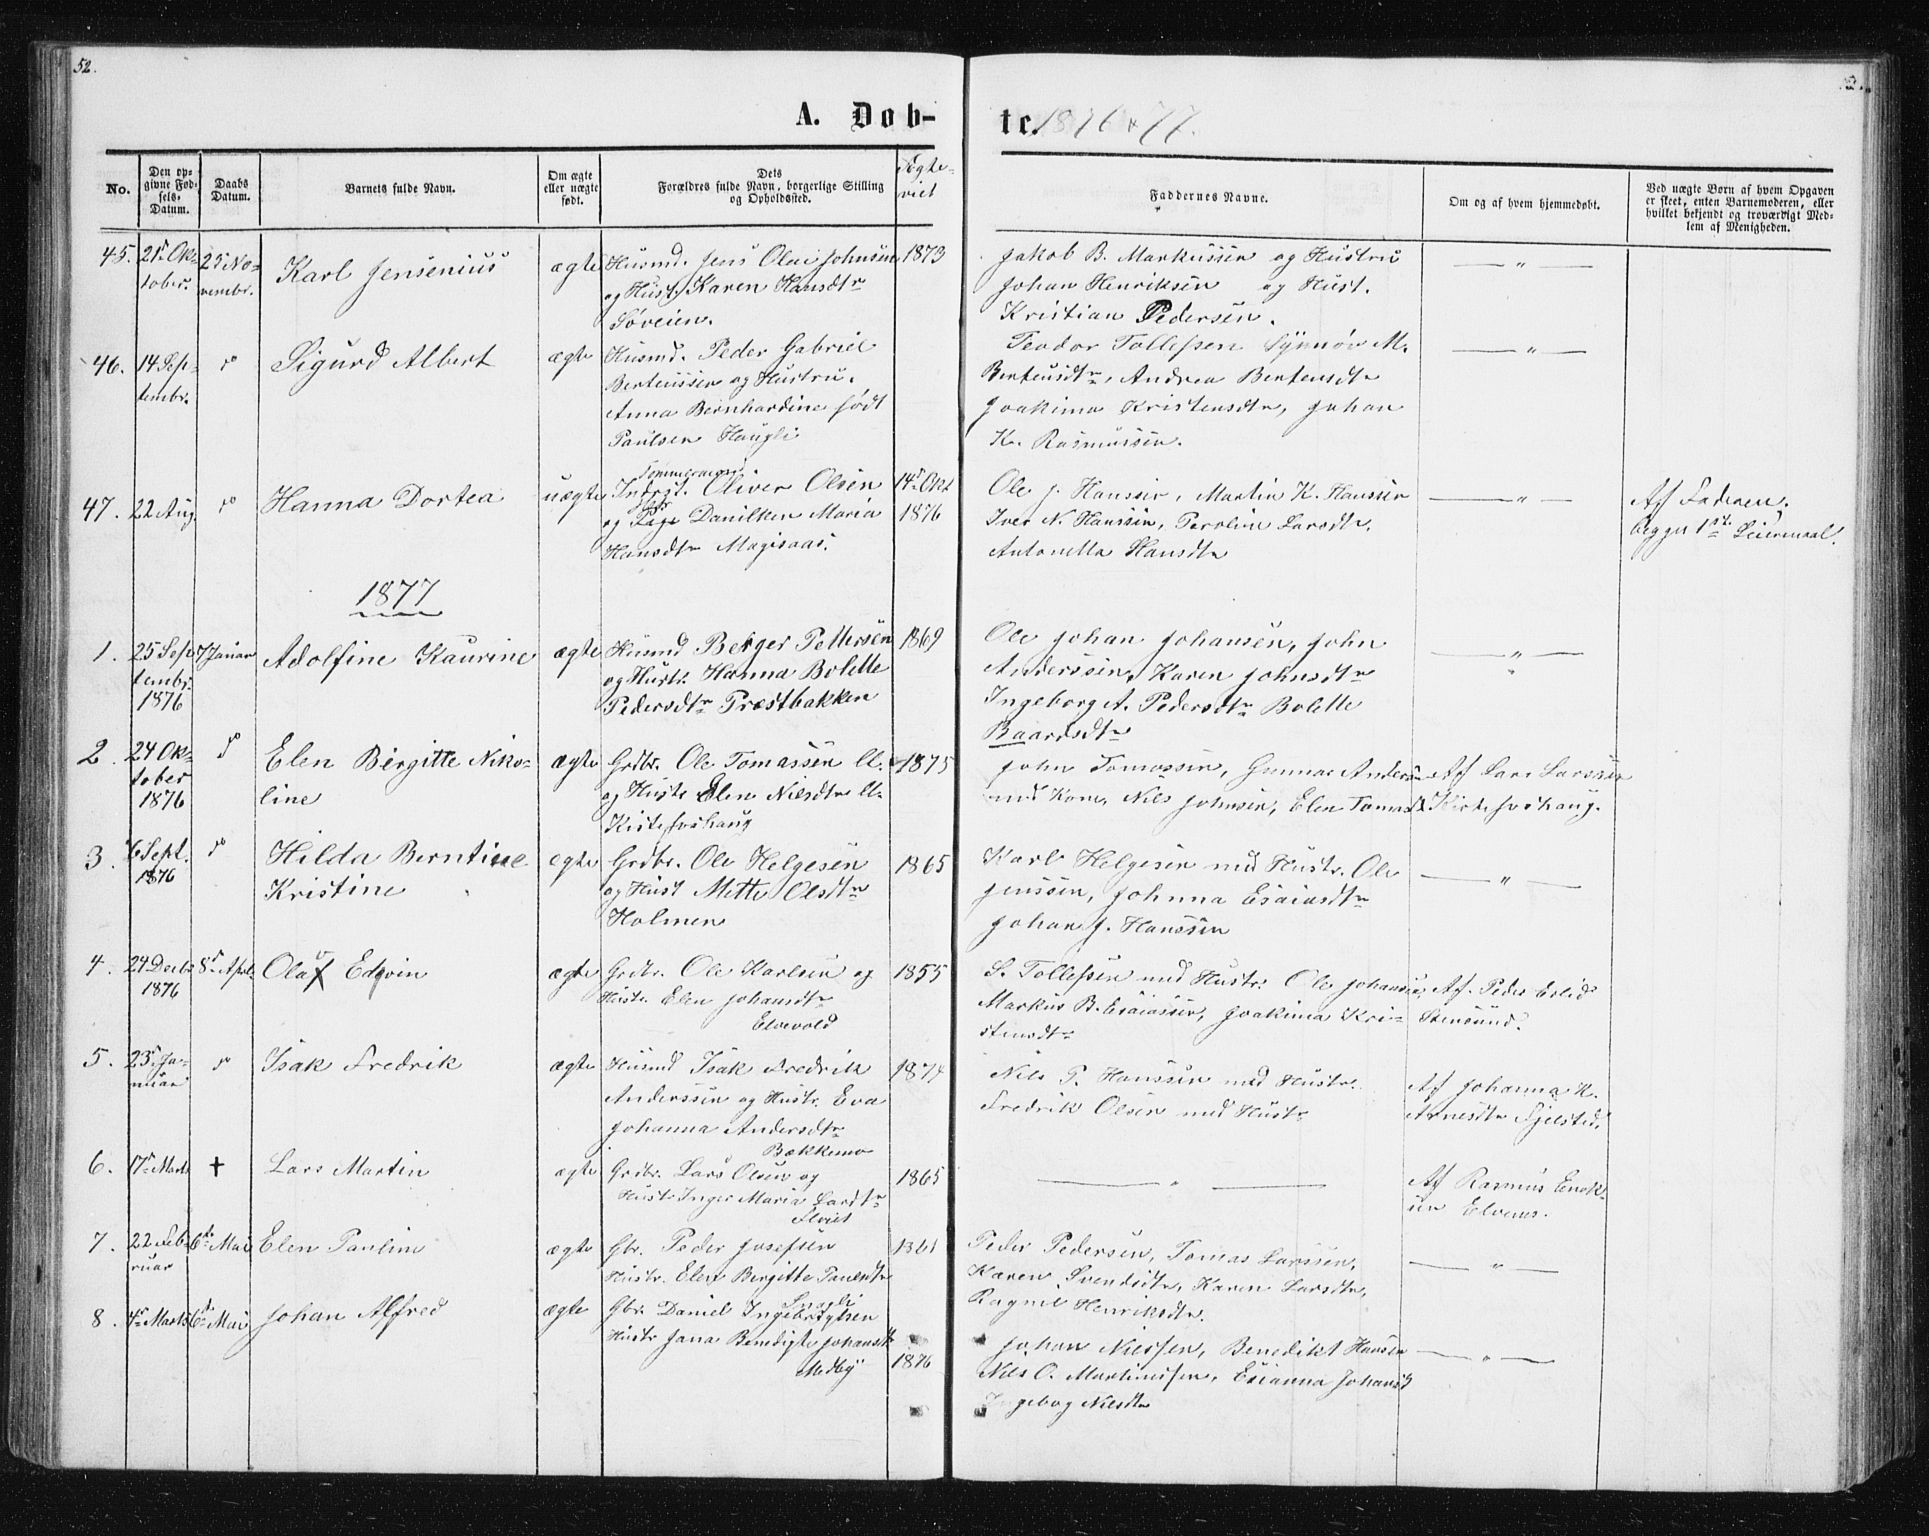 52.
A. Døb-
te. 1876 & 77.
No.
Den op-
givne Fød-
sels-
Datum.
Daabs
Datum.
Barnets fulde Navn.
Om ægte
eller uægte
født.
Dets
Forældres fulde Navn, borgerlige Stilling
og Opholdssted.
Ægte-
viet
Faddernes Navne.
Om og af hvem hjemmedøbt.
Ved uægte Børn af hvem Opgaven
er skeet, enten Barnemoderen, eller
hvilket bekjendt og troværdigt Med-
lem af Menigheden.
45. 21de Ok-
tober. 25 No-
vembr. Karl Jensenius ægte Husmd. Jens Olai Johnsen
og Hust. Karen Hansdtr
Søveien. 1873
Jakob B. Markussen og Hustru
Johan Henriksen og Hust.
Kristian Pedersen. — " —
46. 14 Sep-
tembr. do Sigurd Albert ægte Husmd. Peder Gabriel
Berteussen og Hustru.
Anna Bernhardine født
Paulsen Haugli
Teodor Tollefsen Synnøv M.
Berteusdtr, Andrea Bertensdtr
Joakima Kristensdtr, Johan
K. Rasmussen. — " —
47. 22 Aug. do Hanna Dortea uægte Indrgt. Tømmermand Oliver Olsen
og Pige Danilken Maria
Hansdtr Møgisaas. 14de Okt
1876
Ole J. Hanssen, Martin K. Hanssen
Iver N. Hanssen, Peroline Larsdtr.
Antonetta Hansdtr — " —
Af Faderen;
begges 1ste Leiermaal.
1877
1. 25 Sep-
tembr.
1876 7 Januar Adolfine Kaurine ægte Husmd Berger Pettersen
og Hustr. Hanna Bolette
Pedersdtr Præstbakken 1869
Ole Johan Johansen, John
Anderssen, Karen Johnsdtr
Ingeborg A. Pedersdtr Bolette
Baardsdtr — " —
2. 24 Ok-
tober
1876 do Elen Birgitte Niko-
line ægte Grdbr. Ole Tomassen
og Hustr Elen Nilsdtr
Kistefoshaug 1875
John Tomassen, Gunnar Anders
med Kone, Nils Johnsen, Elen Tomasdt
Af Lars Larssen
Kistefoshaug.
3. 6 Sept.
1876 do Hilda Berntine
Kristine ægte Grdbr. Ole Helgesen
og Hust Mette Olsdtr
Holmen 1865
Karl Helgesen med Hustr. Ole
Jenssen, Johnna Esaiasdtr
Johan J. Hanssen — " —
4. 24 Decbr
1876 8de April Olaf Edvin ægte Grdbr. Ole Karlsen og
Hustr. Elen Johansdtr
Elvevold 1855
S. Tollefsen med Hustr. Ole Johansen,
Markus B. Esaiassen, Joakima Kri-
stensdtr
Af Peder Eelid
Stensund.
5. 23de Ja-
nuar do Isak Fredrik ægte Husmd Isak Fredrik
Anderssen og Hustr. Eva
Johanna Andersdtr
Bækkemo 1874
Nils P. Hanssen med Hustr.
Fredrik Olsen med Hustr
Af Johanna K.
Arnesdtr Fjelsted.
6. 17de Marts † Lars Martin ægte Grdbr. Lars Olsen og
Hustr Inger Maria Larsdtr
1865
— " —
Af Rasmus Enok-
sen Elvenes.
7. 22 Feb-
ruar 6te Mai Elen Pauline ægte Gbr. Peder Josefsen
Hustr. Elen Birgitte Paulsdtr
1861
Peder Pedersen, Tomas Larssen,
Karen Svendsdtr, Karen Larsdtr,
Ragnil Henriksdtr. — " —
8. 4de Marts 6te Mai Johan Alfred ægte Gbr. Daniel Ingebrigtsen
Hustr Jana Benedigte Johansdtr
Medby 1876
Johan Nilssen, Benedikt Hansen
Nils O. Martinussen, Esianna Johansdt
Ingebog Nilsdtr — " —